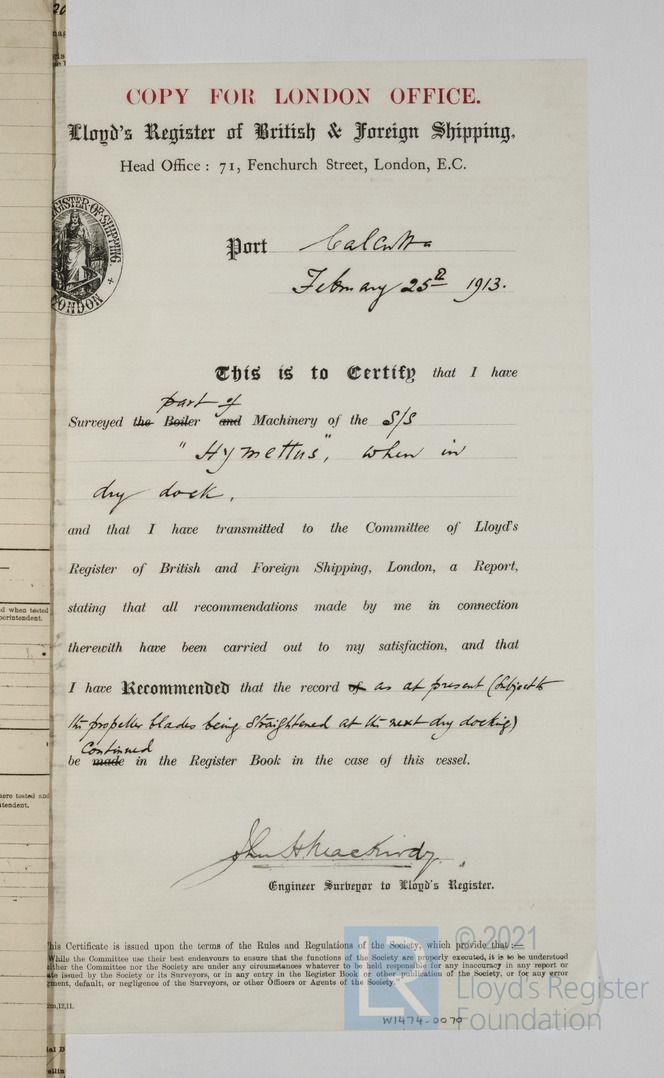 COPY FOR LONDON OFFICE.
Lloyd's Register of British & Foreign Shipping,
Head Office : 71, Fenchurch Street, London, E.C.
REGISTER·OF·SHIPPING
LONDON
Port Calcutta
February 25th 1913.
This is to Certify that I have
part of
Surveyed the Boiler and Machinery of the S/S
"Hymettus", when in
dry dock,
and that I have transmitted to the Committee of Lloyd's
Register of British and Foreign Shipping, London, a Report,
stating that all recommendations made by me in connection
therewith have been carried out to my satisfaction, and that
I have Recommended that the record of as at present (subject to
the propeller blades being straightened at the next dry docking)
Continued
be made in the Register Book in the case of this vessel.
Engineer Surveyor to Lloyd's Register.
his Certificate is issued upon the terms of the Rules and Regulations of the Society, which provide that :—
While the Committee use their best endeavours to ensure that the functions of the Society are properly executed, it is to be understood
ither the Committee nor the Society are under any circumstances whatever to be held responsible for any inaccuracy in any report or
ate issued by the Society or its Surveyors, or in any entry in the Register Book or other publication of the Society, or for any error
gment, default, or negligence of the Surveyors, or other Officers or Agents of the Society."
12,11.
© 2021
LR
Lloyd's Register
Foundation
W1474-0070
d when tested
perintendent.
were tested and
ntendent.